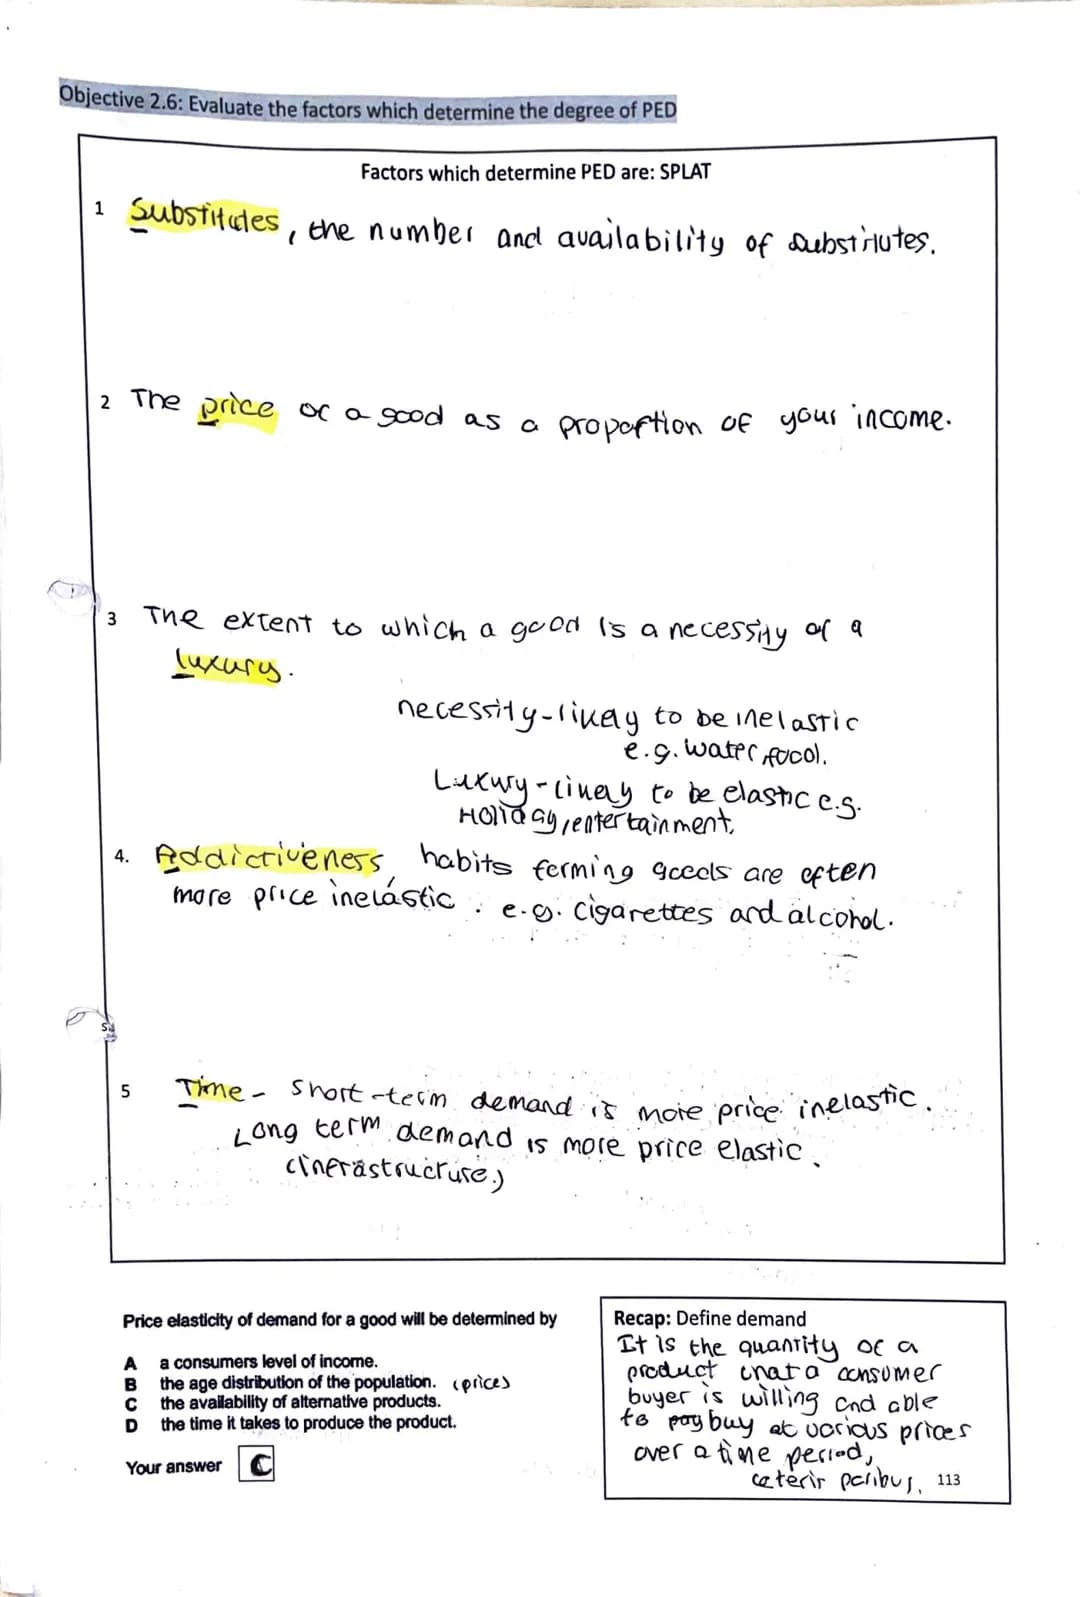 Objective 2.6: Evaluate the factors which determine the degree of PED
Factors which determine PED are: SPLAT
1 Substitutes, the number and availability of substitutes.
2 The price of a good as a proportion of your income.
3 The extent to which a good is a necessity or a
luxury.
necessity - likely to be inelastic
e.g. water, food.
Luxury - likely to be elastic e.g.
Holiday, entertainment.
4. Addictiveness, habits forming goods are often
more price inelastic. e.g. cigarettes and alcohol.
5 Time - short-term demand is more price inelastic.
Long term demand is more price elastic.
(infrastructure.)
Price elasticity of demand for a good will be determined by
A a consumers level of income.
B the age distribution of the population. (prices)
C the availability of alternative products.
D the time it takes to produce the product.
Your answer C
Recap: Define demand
It is the quantity of a
product that a consumer
buyer is willing and able
to pay buy at various prices
over a time period,
ceterir paribus. 113